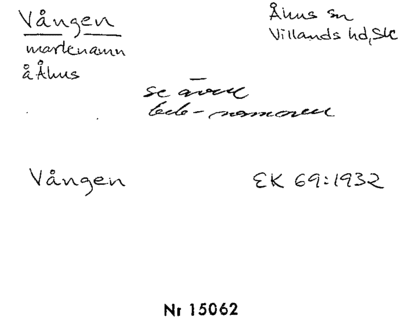 Vången
Åhus sn
markenamn
Villands hd, Sk
å Åhus
se även
Vången
EK 69:1932
Nr 15062